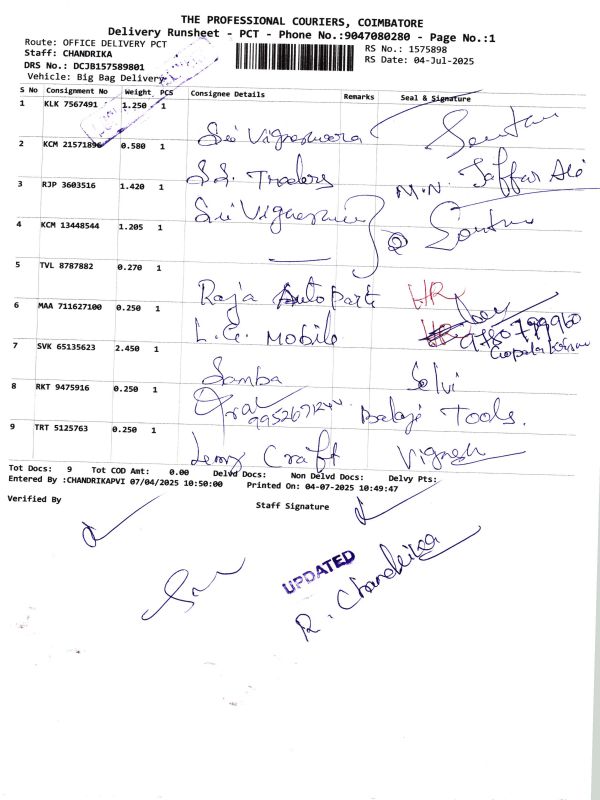 THE PROFESSIONAL COURIERS, COIMBATORE
Delivery Runsheet - PCT - Phone No.:9047080280 - Page No.:1
Route: OFFICE DELIVERY PCT
RS No.: 1575898
Staff: CHANDRIKA
RS Date: 04-Jul-2025
DRS No.: DCJB157589801
Vehicle: Big Bag Delivery
S No Consignment No Weight PCS Consignee Details Remarks Seal & Signature
1 KLK 7567491 1.250 1 Sri Vigneswara
2 KCM 21571896 0.580 1 S.S. Traders M.N. Jaffar Ali
3 RJP 3603516 1.420 1 Sri Vigneswara
4 KCM 13448544 1.205 1
5 TVL 8787882 0.270 1 Raja Auto Parts HR
6 MAA 711627100 0.250 1 L.G. Mobile HR
7 SVK 65135623 2.450 1 Samba Selvi
8 RKT 9475916 0.250 1 Balaji Tools.
9 TRT 5125763 0.250 1 Craft Vignesh
Tot Docs: 9 Tot COD Amt: 0.00 Delvd Docs: Non Delvd Docs: Delvy Pts:
Entered By :CHANDRIKAPVI 07/04/2025 10:50:00 Printed On: 04-07-2025 10:49:47
Verified By
Staff Signature
UPDATED
R. Chandrika